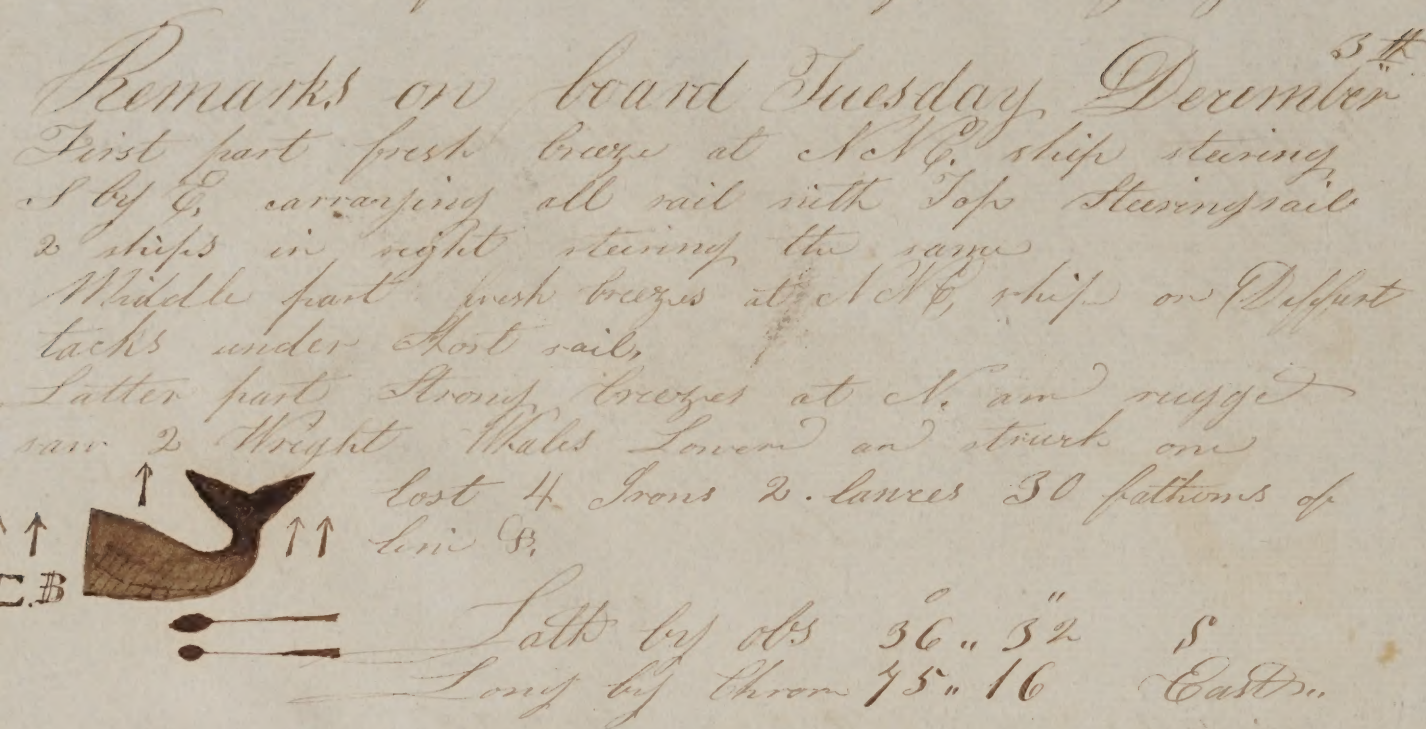 Remarks on board Tuesday December 3th
First part fresh breeze at NNE. ship steiring
S by E. carranjing all sail with Top Steeringsail
2 ships in sight steiring the same
Middle part fresh breezes at NNE, ship on Deffurt
tacks under Short sail,
Latter part Strong breezes at N. an rugged
saw 2 Wright Whales Lowerd an struck one
lost 4 Irons 2. lances 30 fathoms of
line
C.B
Lath by obs 36 „ 32 S
Long by Chrom 75 „ 16 East „